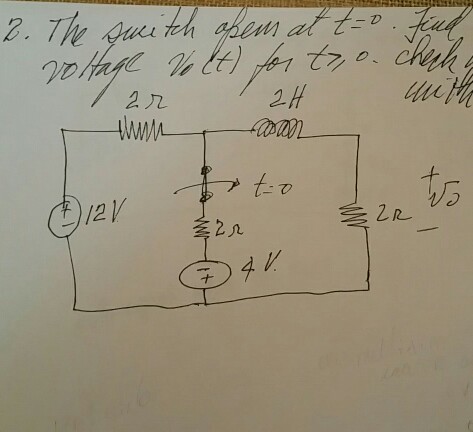 2. The switch opens at t=0. Find
voltage Vo(t) for t≥0. check
with
2Ω
2H
t=0
+
12V
-
2Ω
2Ω
+
Vo
-
-
+
4V.